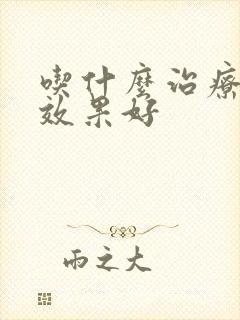 喫什麼治療
效果好
雨之大